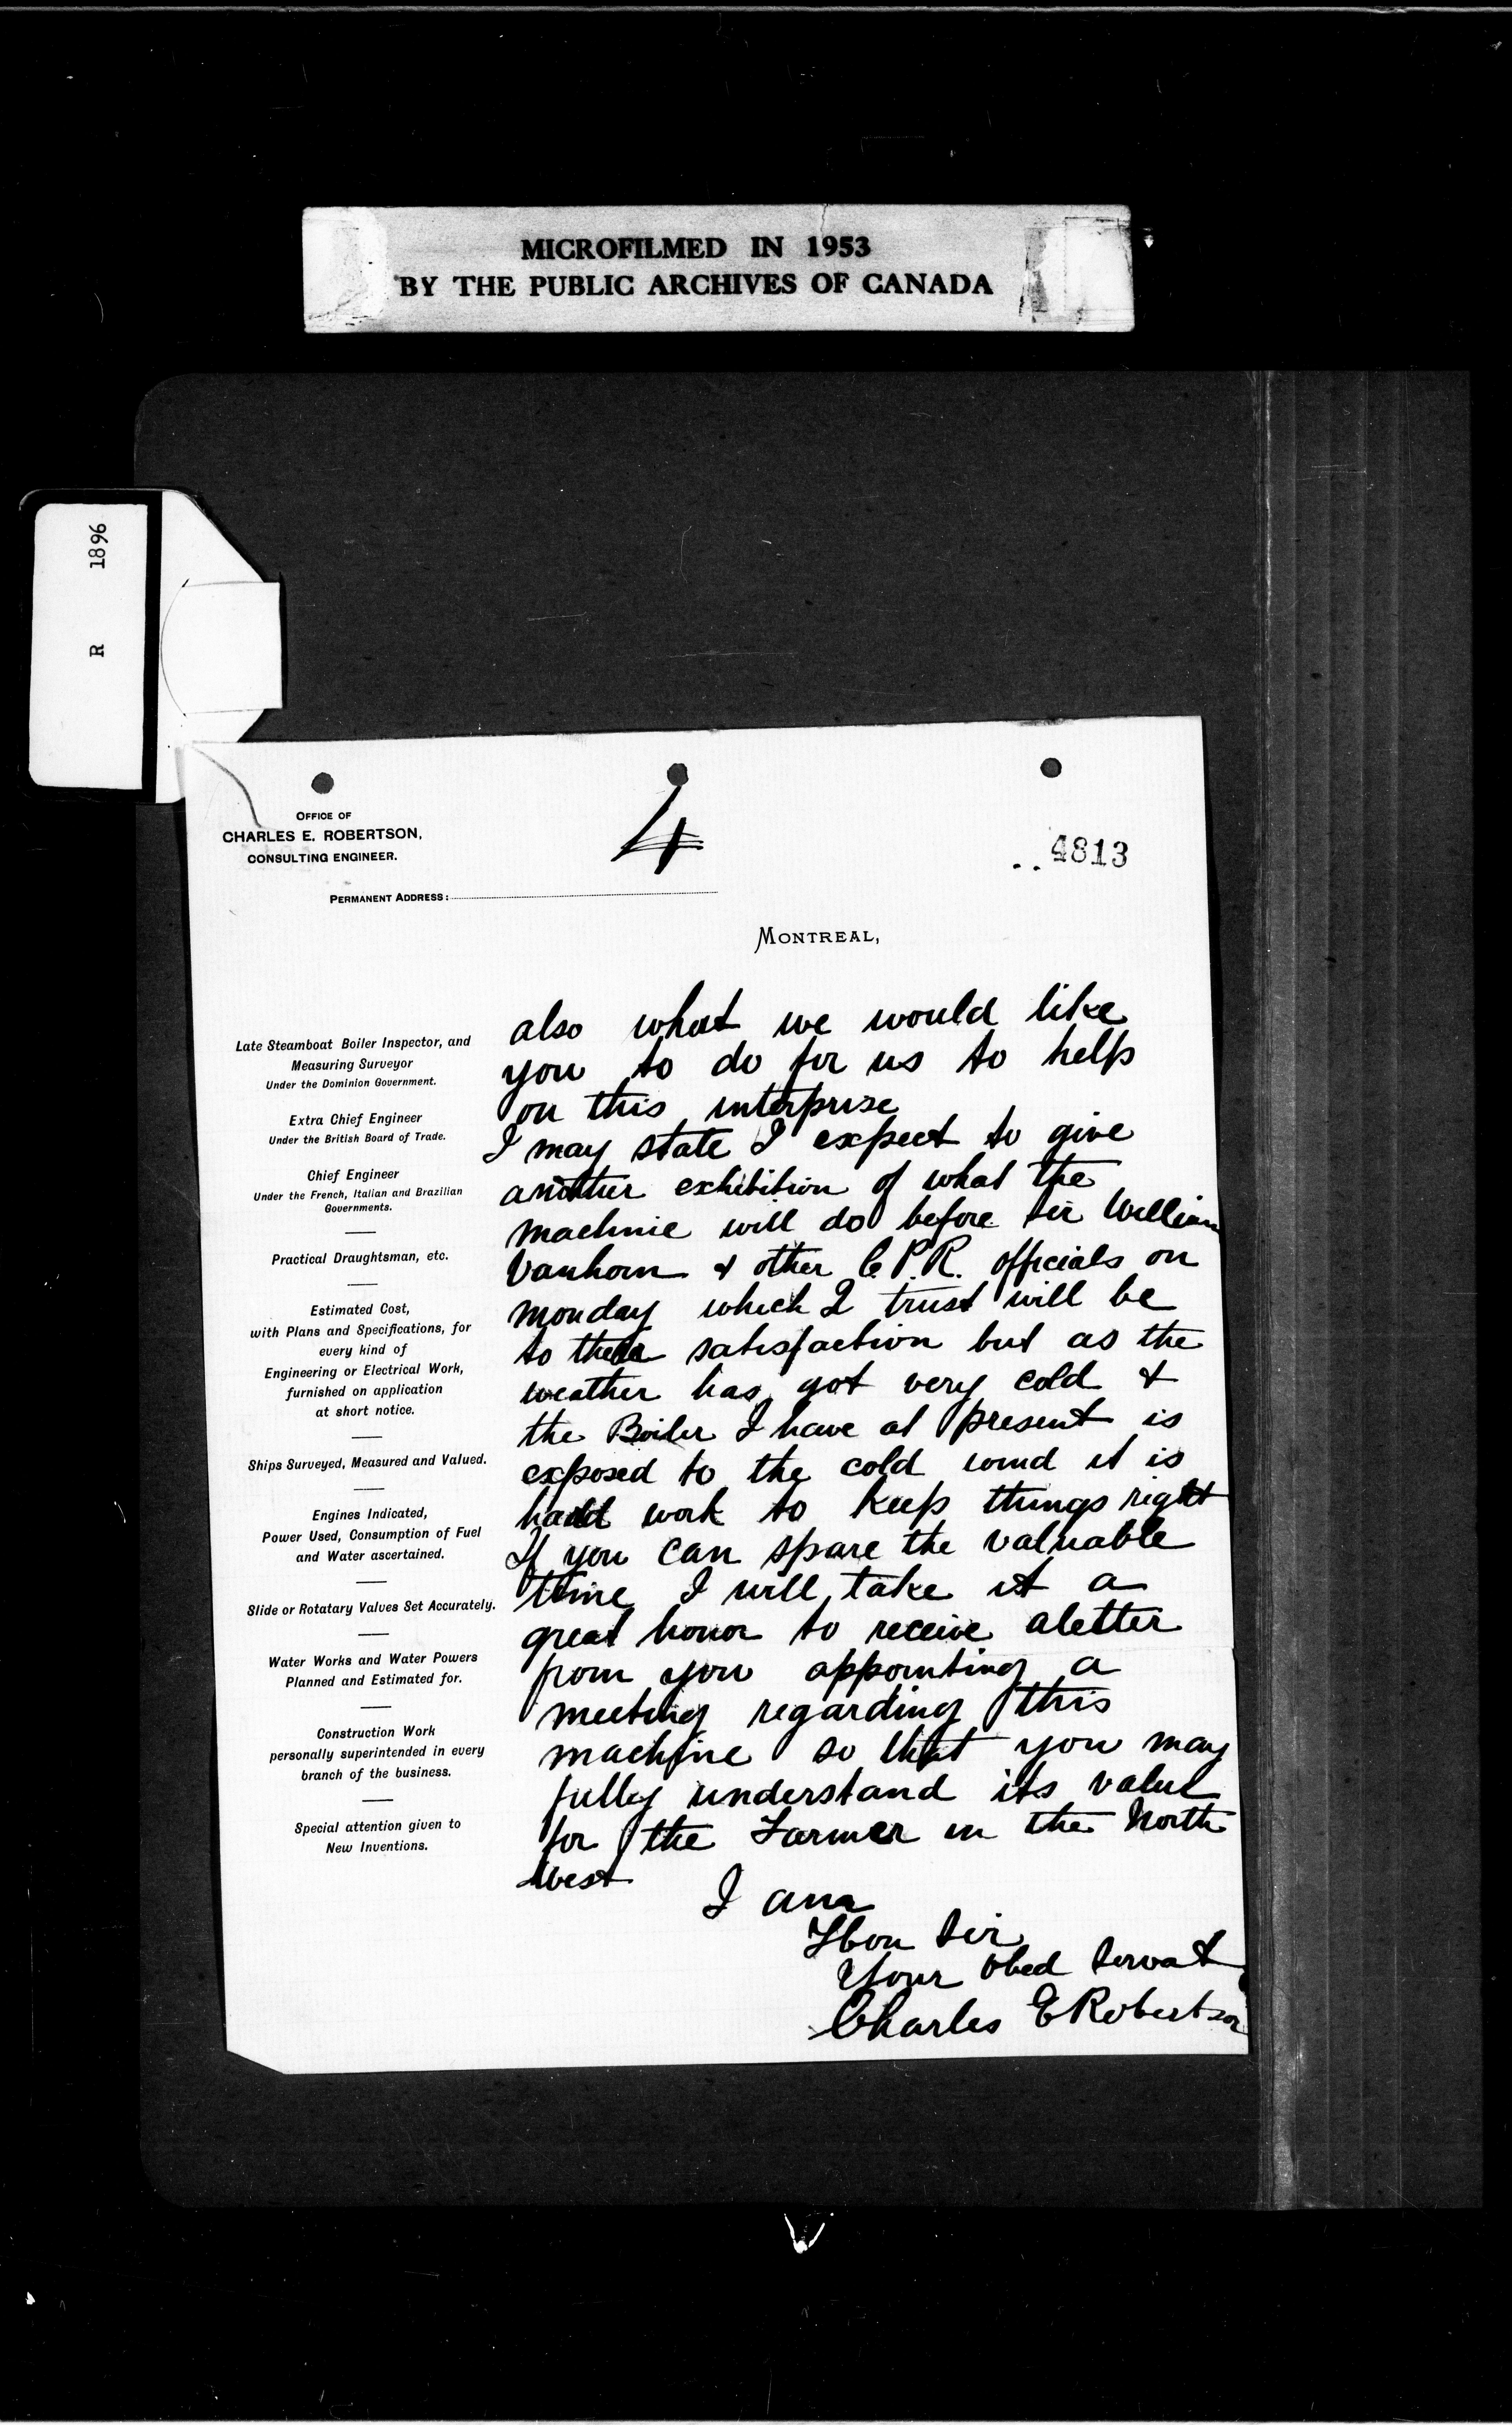 MICROFILMED IN 1953
BY THE PUBLIC ARCHIVES OF CANADA
R 1896
OFFICE OF
CHARLES E. ROBERTSON,
CONSULTING ENGINEER.
4
4813
PERMANENT ADDRESS:
MONTREAL,
Late Steamboat Boiler Inspector, and
Measuring Surveyor
Under the Dominion Government.
Extra Chief Engineer
Under the British Board of Trade.
Chief Engineer
Under the French, Italian and Brazilian
Governments.
Practical Draughtsman, etc.
Estimated Cost,
with Plans and Specifications, for
every kind of
Engineering or Electrical Work,
furnished on application
at short notice.
Ships Surveyed, Measured and Valued.
Engines Indicated,
Power Used, Consumption of Fuel
and Water ascertained.
Slide or Rotatary Valves Set Accurately.
Water Works and Water Powers
Planned and Estimated for.
Construction Work
personally superintended in every
branch of the business.
Special attention given to
New Inventions.
also what we would like
you to do for us to help
on this interprise
I may state I expect to give
another exhibition of what the
machine will do before Sir William
Vanhorn & other C.P.R. officials on
monday which I trust will be
to satisfaction but as the
weather has got very cold &
the Boiler I have at present is
exposed to the cold wind it is
hard work to keep things right
If you can spare the valuable
time I will take it a
great honor to receive aletter
from you appointing a
meeting regarding this
machine so that you may
fully understand its value
for the Farmer in the North
West
I am
Hon Sir
Your obed Servat
Charles E Robertson